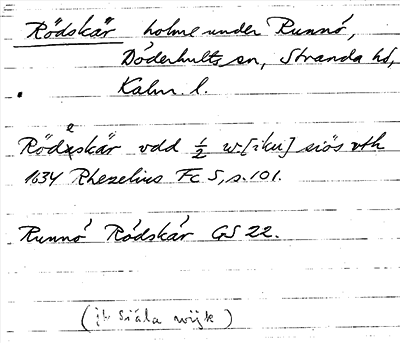 Rödskär holme under Runnö,
Döderhults sn, Stranda hd,
Kalm. l.
Rödeskär vdd ½ w[iku] siös vth
1634 Rhezelius Fc 5, s. 101.
Runnö Rödskär GS 22.
(it Siäla wijk)